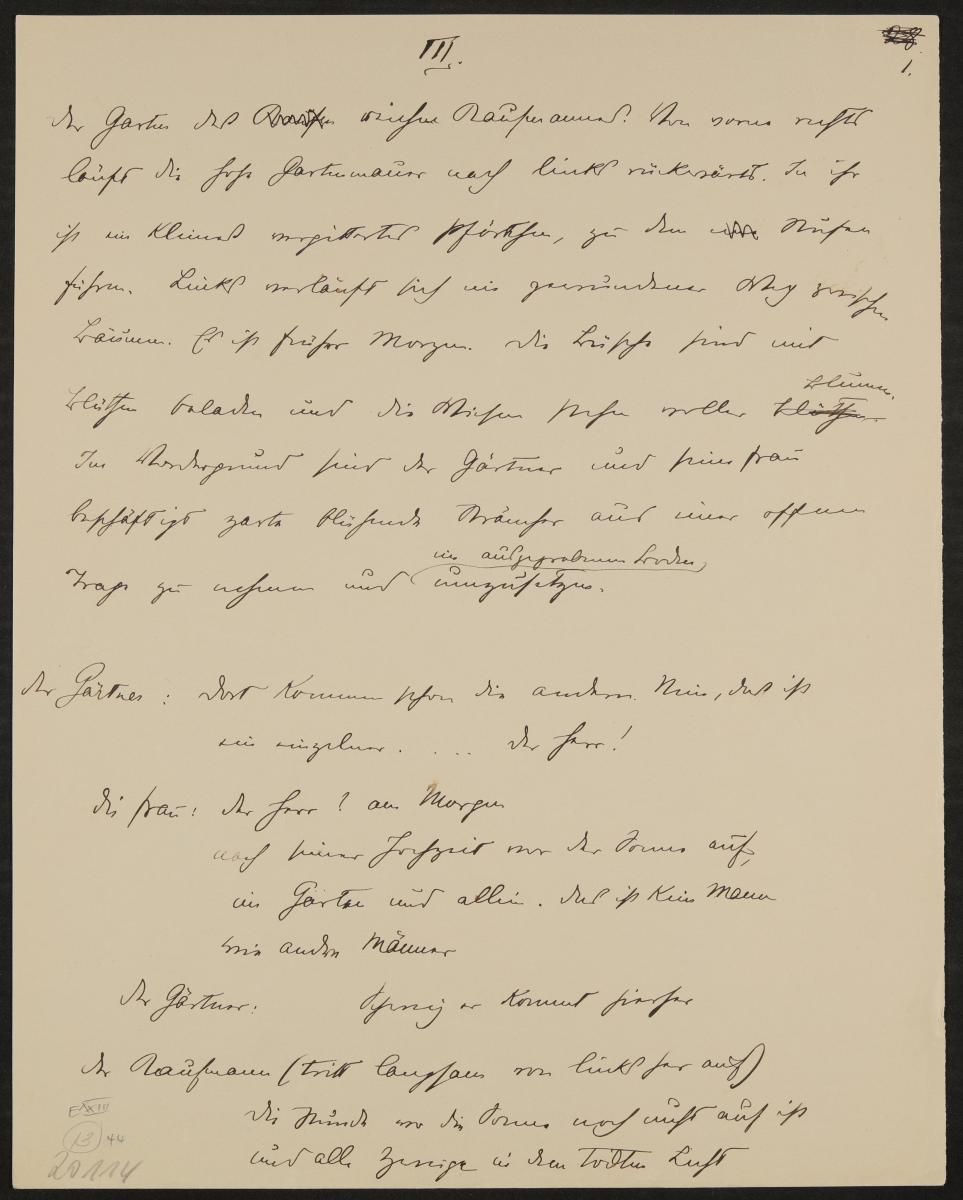 III.
28
1.
der Garten des reichen Kaufmannes. Von vorne rechts
läuft die hohe Gartenmauer nach links rückwärts. In ihr
ist ein kleines vergittertes Pförtchen, zu dem Stufen
führen. Links verläuft sich ein gewundener Weg zwischen
Bäumen. Es ist früher Morgen. Die Büsche sind mit
Blüthen beladen und die Wiesen stehn voller Blumen.
Im Vordergrund sind der Gärtner und seine Frau
beschäftigt zarte blühende Sträucher aus einer offenen
Trage zu nehmen und im aufgegrabenen Boden umzusetzen.
der Gärtner: dort kommen schon die andern. Nein, das ist
ein einzelner. ... der Herr!
die Frau: der Herr? am Morgen
nach seiner Hochzeit vor der Sonne auf,
im Garten und allein. das ist kein Mann
wie andre Männer
der Gärtner: Schweig er kommt hierher
der Kaufmann (tritt langsam von links her auf)
die Stunde wo die Sonne noch nicht auf ist
und alle Zweige in dem todten Licht
E XXIII
13 44
20114